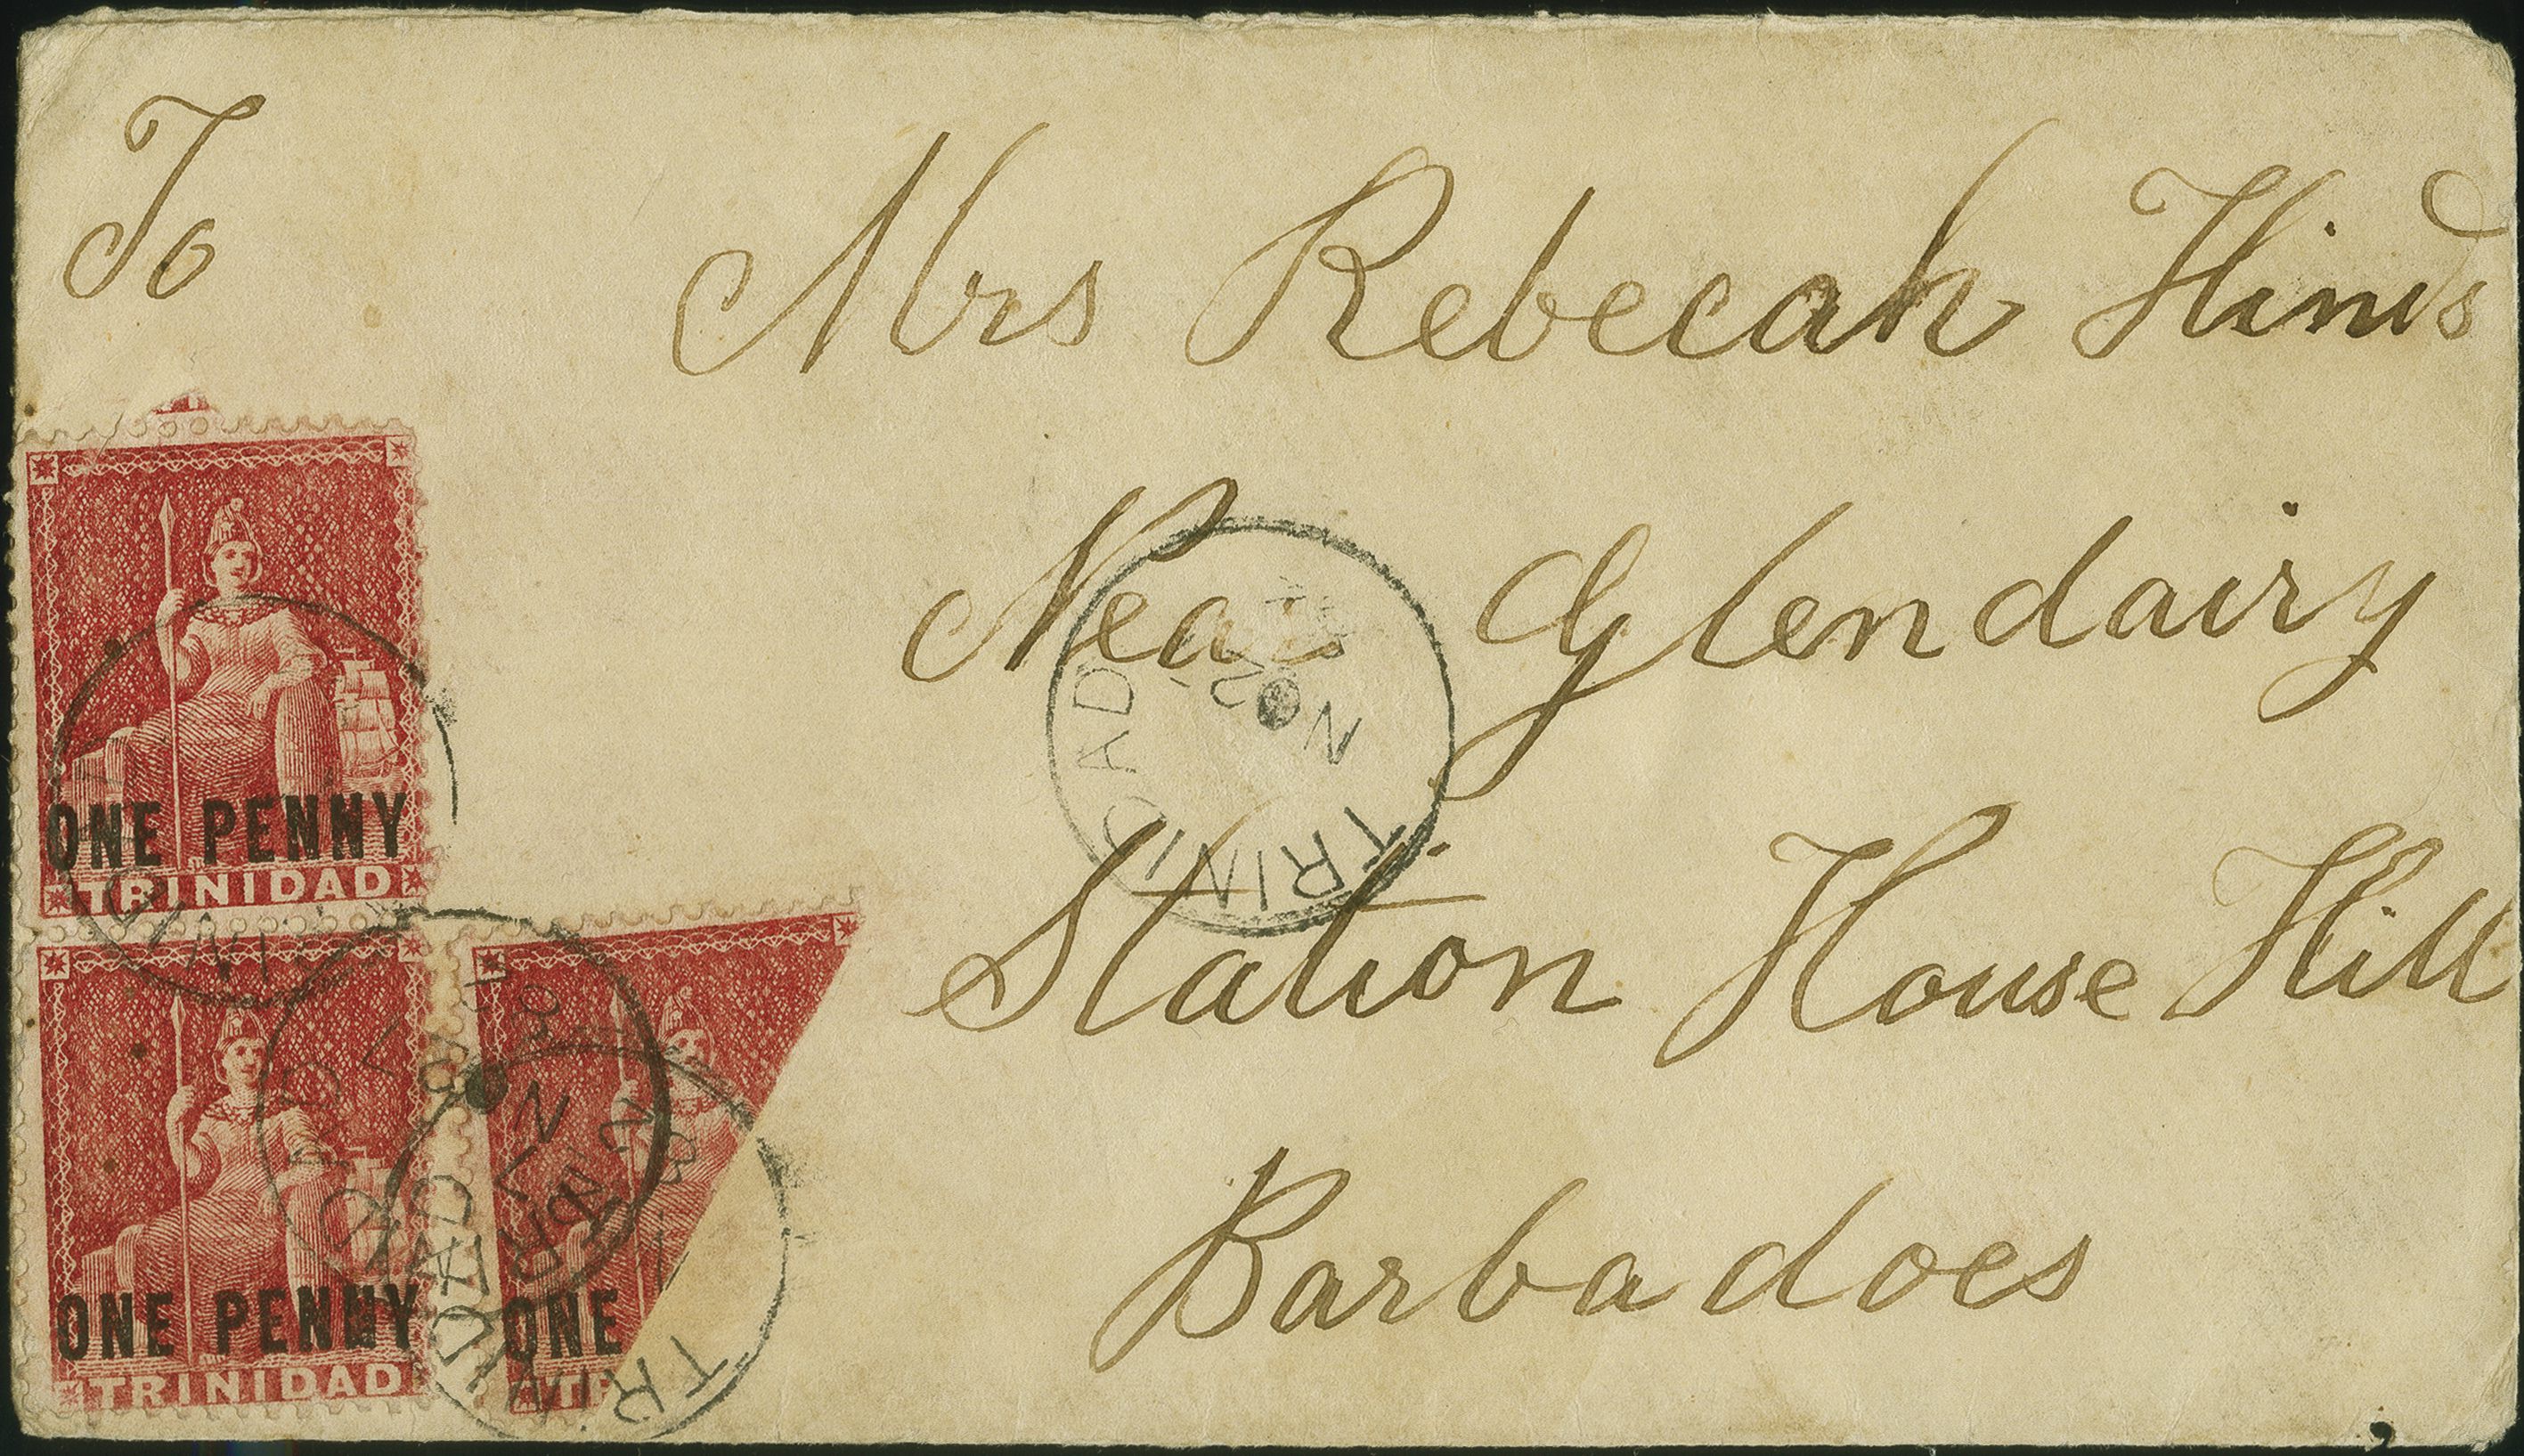 To
Mrs Rebecah Hinds
Near Glendairy
Station House Hill
Barbadoes
ONE PENNY
TRINIDAD
ONE PENNY
TRINIDAD
ONE
TR
TRINIDAD
N
TRINIDAD
TRINIDAD